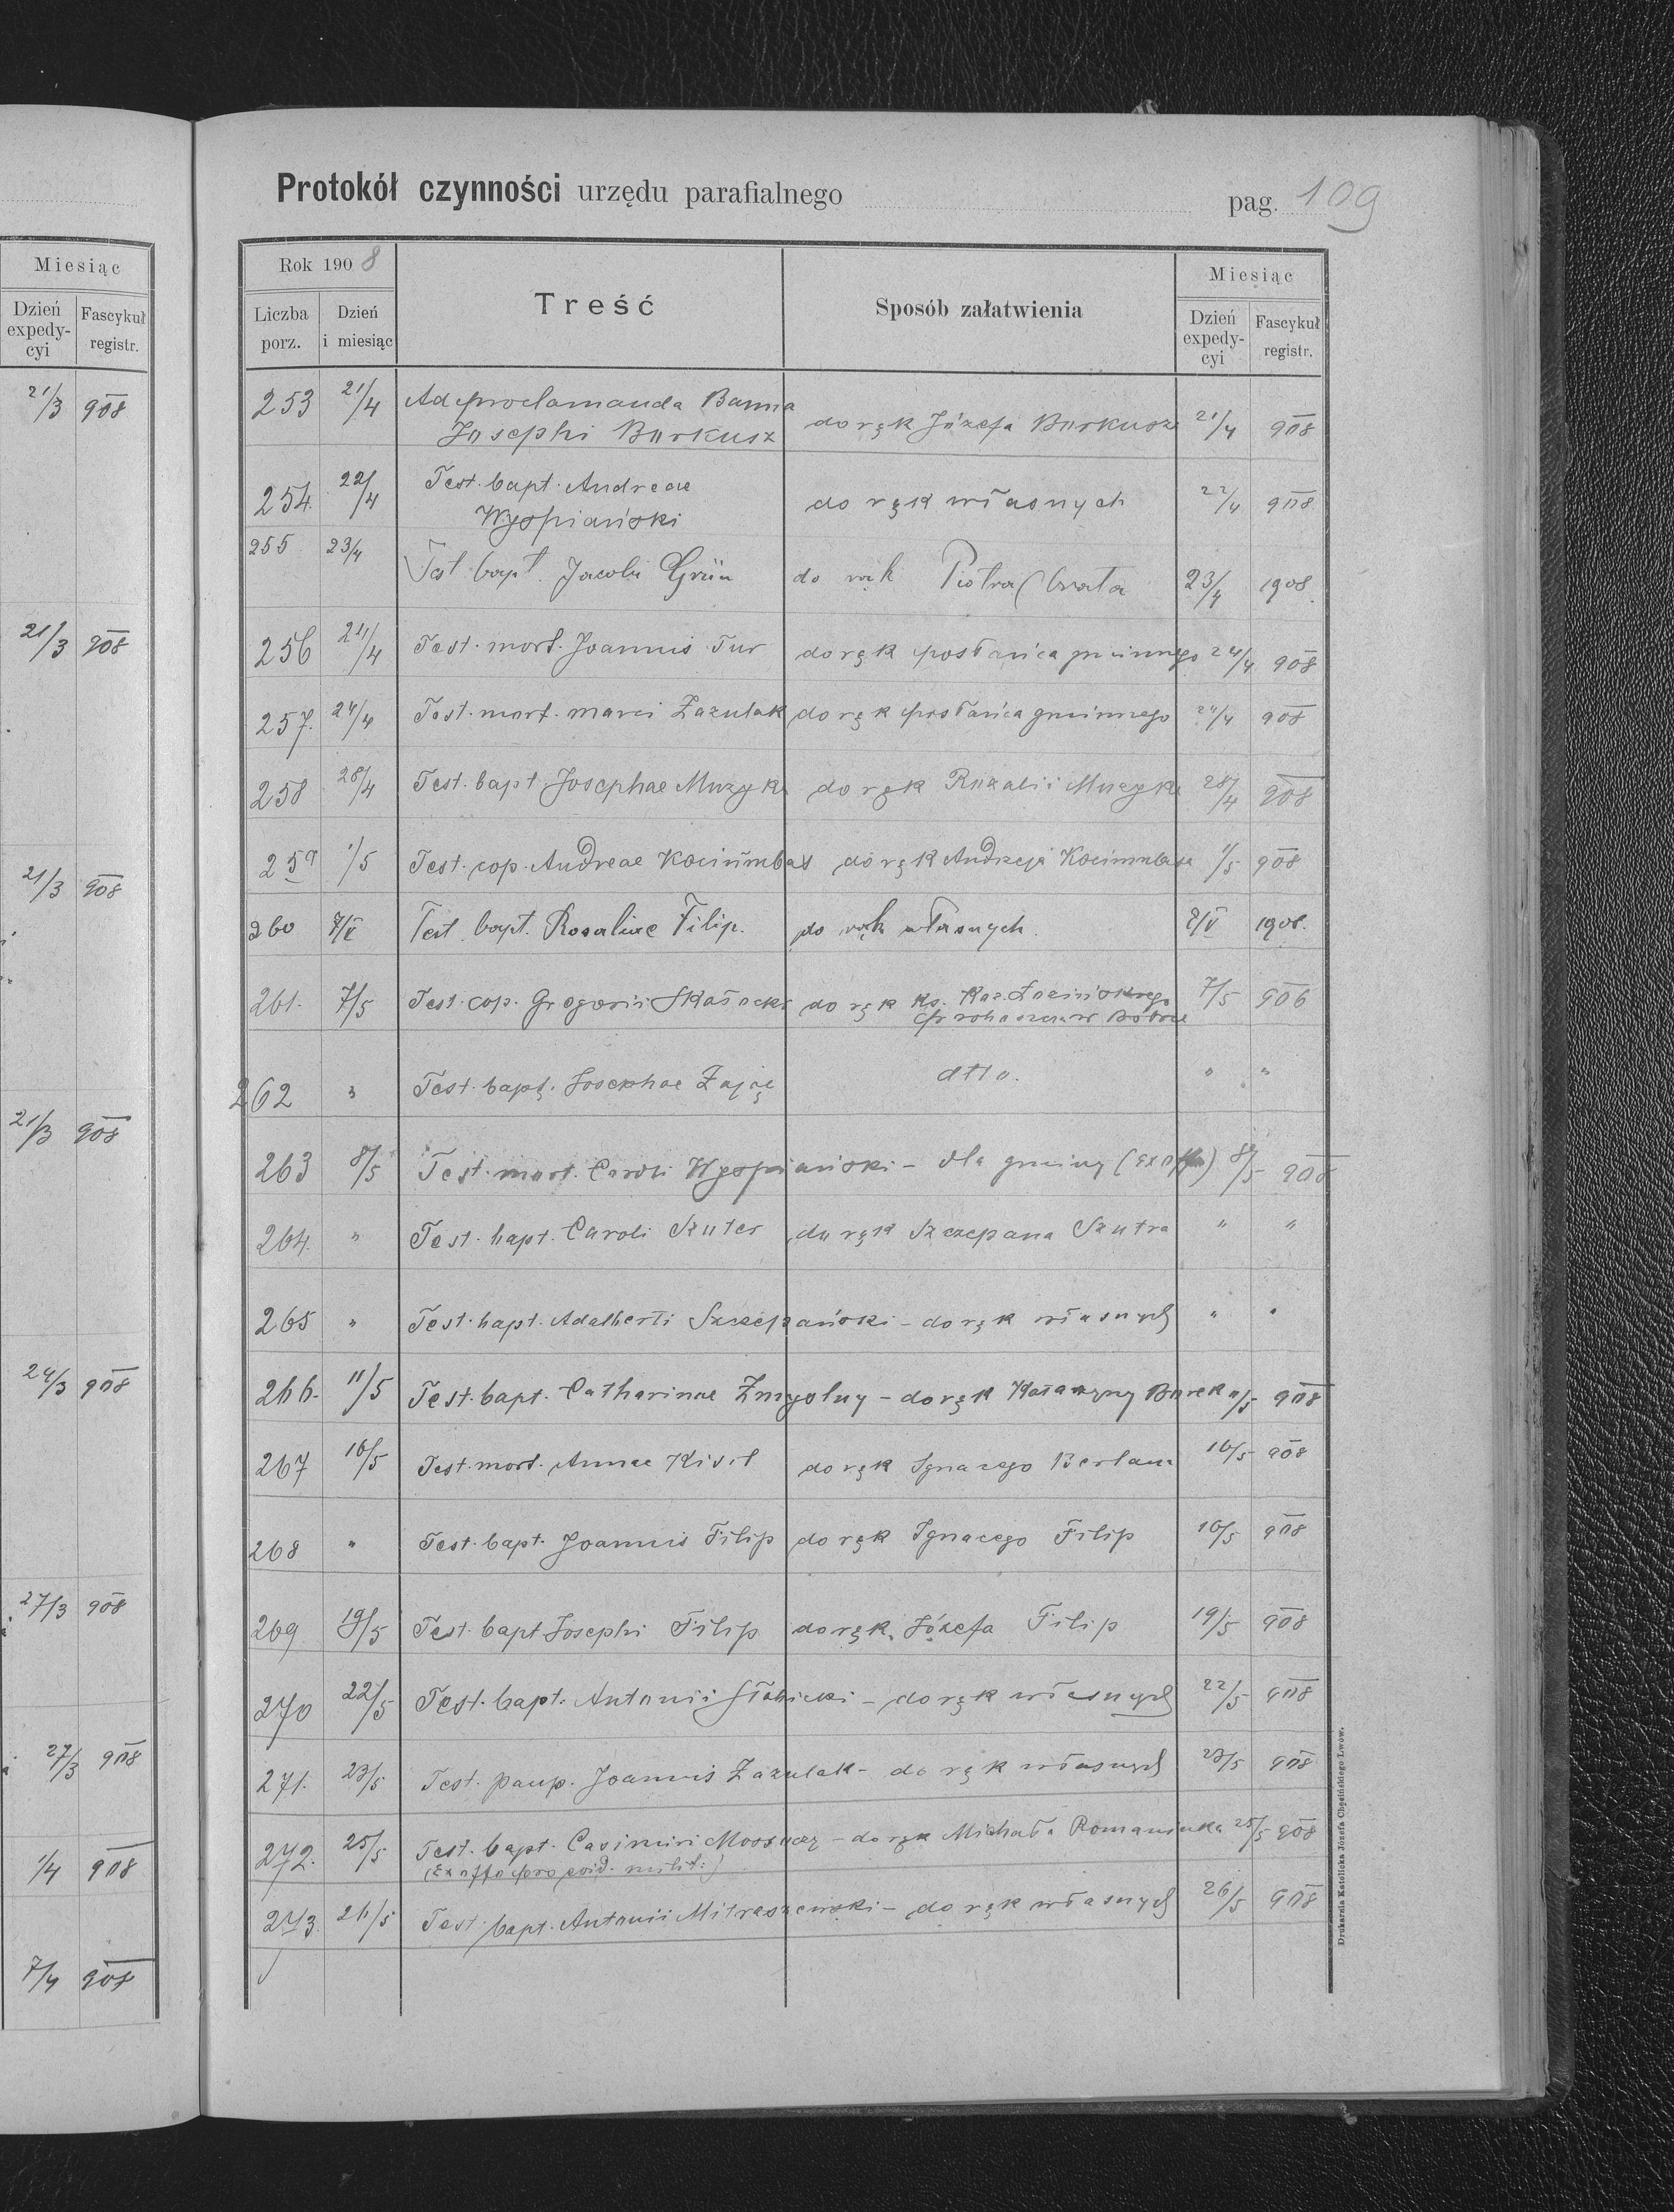 Miesiąc
Dzień expedy-cyi
Fascykuł registr.
21/3 908
21/3 908
21/3 908
21/3 908
24/3 908
27/3 908
27/3 908
1/4 908
7/4 908
Protokół czynności urzędu parafialnego pag. 109
Rok 1908
Miesiąc
Liczba porz.
Dzień i miesiąc
Treść
Sposób załatwienia
Dzień expedy-cyi
Fascykuł registr.
253 21/4 Ad proclamanda Banna
Josephi Burkusz do rąk Józefa Burkusza 21/4 908
254. 22/4 Test. bapt. Andreae
Wyspiański do rąk własnych 22/4 908
255 23/4 Test. bapt. Jacobi Grün do rąk Piotra 23/4 1908.
256 24/4 Test. mort. Joannis Tur do rąk posłańca gminnego 24/4 908
257. 24/4 Test. mort. Marci Zazulak do rąk posłańca gminnego 24/4 908
258 28/4 Test. bapt. Josephae Muzyka do rąk Rozalii Muzyka 28/4 908
259 1/5 Test. cop. Andreae Kociumbas do rąk Andrzeja Kociumbasa 1/5 908
260 7/V Test. bapt. Rosaliae Filip. do rąk własnych. 1908.
261. 7/5 Test. cop. Gregorii do rąk ks. Kaz.
7/5 906
262 " Test. bapt. Josephae Zając dtto. " "
263 8/5 Test. mort. Caroli Wyspiański - dla gminy (ex offo) 8/5 908
264. " Test. bapt. Caroli Szuter do rąk Szczepana Szutra " "
265 " Test. bapt. Adalberti Szczepański - do rąk własnych " "
266. 11/5 Test. bapt. Catharinae Zmysłny - do rąk Katarzyny Burek 11/5 908
267 16/5 Test. mort. Annae Kisil do rąk Ignacego 16/5 908
268 " Test. bapt. Joannis Filip do rąk Ignacego Filip 16/5 908
269 19/5 Test. bapt. Josephi Filip do rąk Józefa Filip 19/5 908
270 22/5 Test. bapt. Antonii Słobicki - do rąk własnych 22/5 908
271. 23/5 Test. paup. Joannis Zazulak - do rąk własnych 23/5 908
272. 25/5 Test. bapt. Casimiri - do rąk Michała Romaniuka 25/5 908
(Ex offo pro evid. milit.)
273. 26/5 Test. bapt. Antonii Mitraszewski - do rąk własnych 26/5 908
Drukarnia Katolicka Józefa Chęcińskiego Lwów.